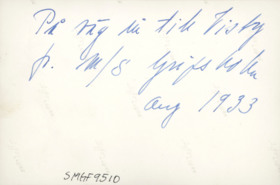 På väg in till Visby
fr. M/S Gripsholm
aug 1933
SMGF9510